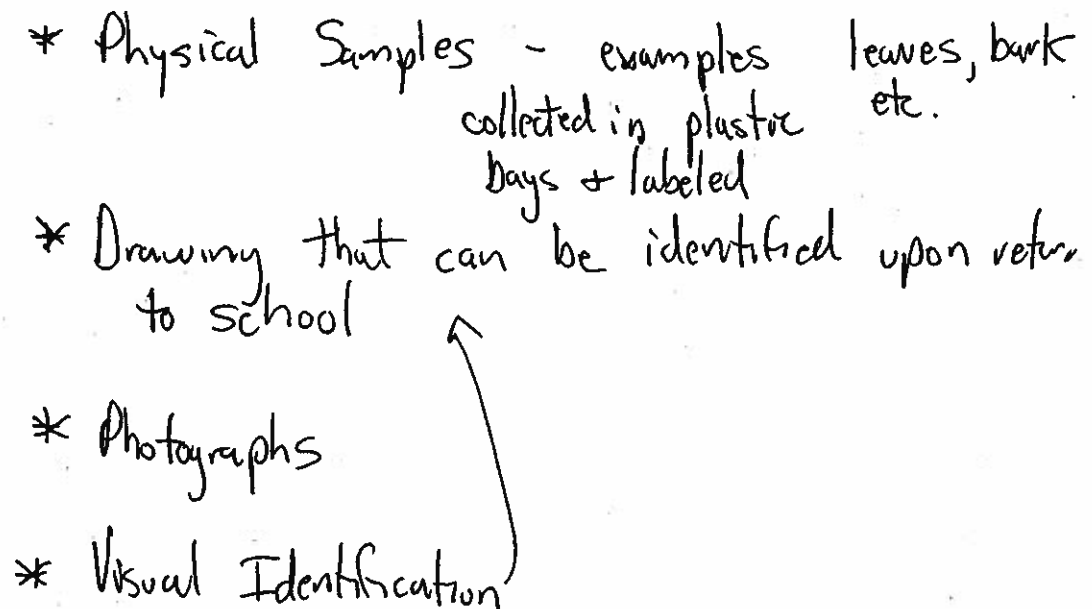 * Physical Samples - examples leaves, bark
etc.
collected in plastic
bags + labeled
* Drawing that can be identified upon return
to school
* Photographs
* Visual Identification